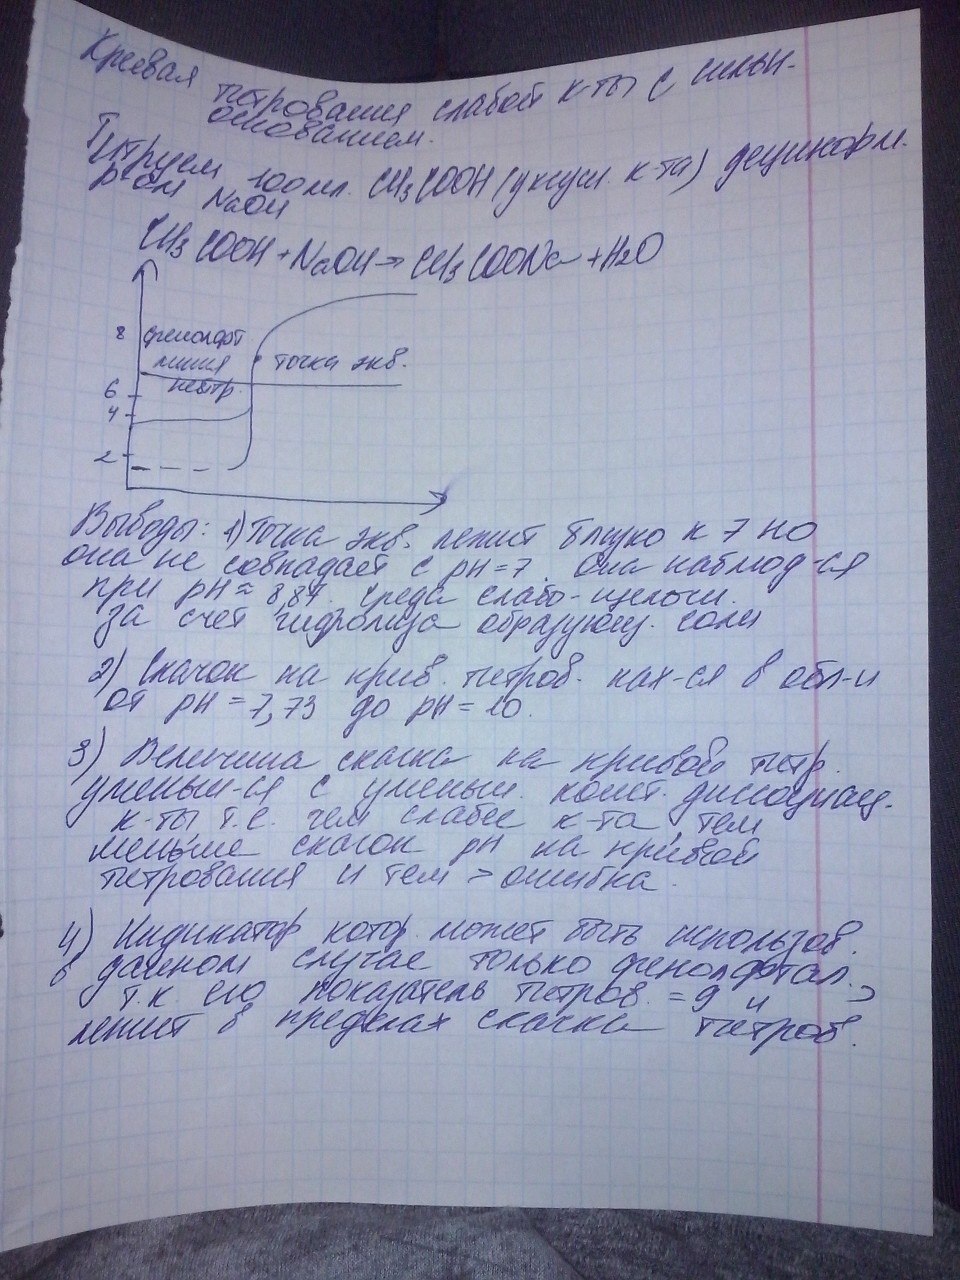 Кривая титрования слабой к-ты с сильн.
основанием.
Титруем 100 мл. CH3COOH (уксусн. к-та) децинорм.
р-ом NaOH
CH3COOH + NaOH → CH3COONa + H2O
8 фенолфт
линия точка экв.
нейтр.
6
4
2
Выводы: 1) Точка экв. лежит близко к 7 но
она не совпадает с pH=7. Она наблюд-ся
при pH≈8,87. среда слабо-щелочн.
за счет гидролиза образующ. соли
2) Скачок на крив. титров. нах-ся в обл-и
от pH=7,73 до pH=10.
3) Величина скачка на кривой титр.
уменьш-ся с уменьш. конст. диссоциац.
к-ты т.е. чем слабее к-та, тем
меньше скачок pH на кривой
титрования и тем > ошибка.
4) Индикатор котор. может быть использов.
в данном случае только фенолфтал.,
т.к. его показатель титров. =9 и
лежит в пределах скачка титров.